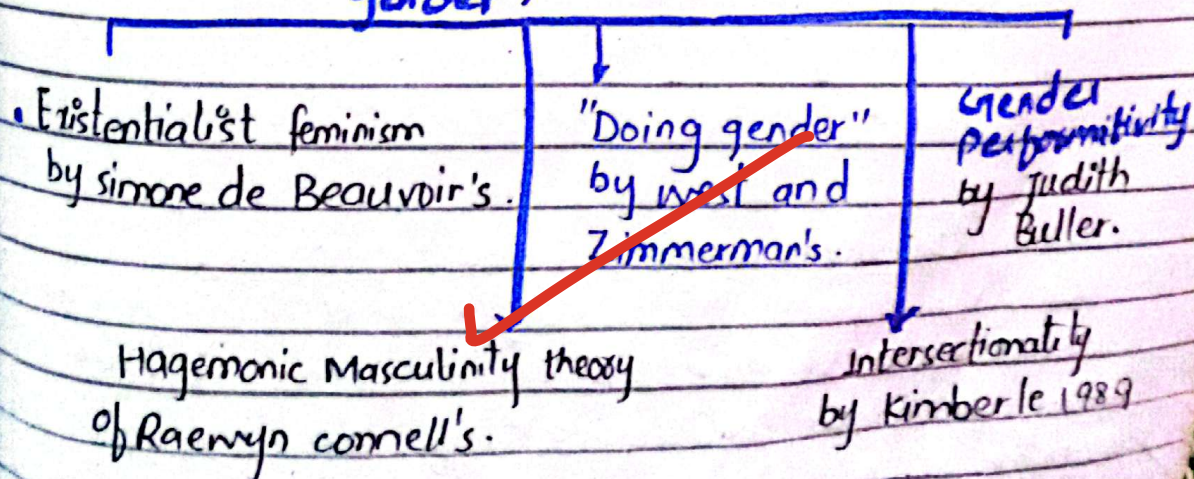 gender
• Existentialist feminism
by simone de Beauvoir's.
"Doing gender"
by west and
Zimmerman's.
Gender
performitivity
by Judith
Buller.
Hagemonic Masculinity theory
of Raewyn connell's.
Intersectionality
by Kimberle 1989